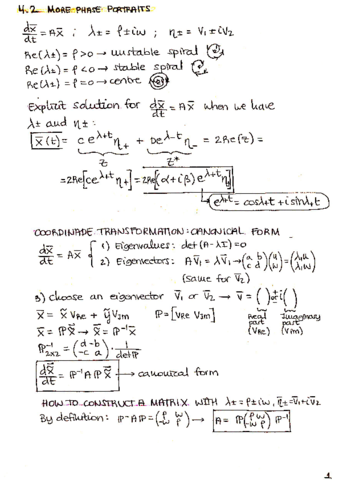 4.2 MORE PHASE PORTRAITS
dx̄/dt = Ax̄ ; λ± = ρ ± iω ; η± = v̄₁ ± iv̄₂
Re(λ±) = ρ > 0 → unstable spiral
Re(λ±) = ρ < 0 → stable spiral
Re(λ±) = ρ = 0 → centre
Explicit solution for dx̄/dt = Ax̄ when we have
λ± and η± :
x̄(t) = ce^λ+t η+ + De^λ-t η- = 2Re(z) =
z z*
= 2Re[ce^λ+t η+] = 2Re[(α+iβ)e^λ+t η+]
e^λ+t = cosλ+t + i sinλ+t
COORDINADE TRANSFORMATION: CANONICAL FORM
dx̄/dt = Ax̄ { 1) Eigenvalues: det(A-λI)=0
2) Eigenvectors: Av̄₁ = λv̄₁ → (a b / c d)(u / w) = (λ₁u / λ₁w)
(same for v̄₂)
3) choose an eigenvector v̄₁ or v̄₂ → v̄ = ( ) + or - i ( )
x̄ = x̃ VRe + ỹ VIm ℙ = [VRe VIm] Real part (VRe) Imaginary part (VIm)
x̄ = ℙx̃ → x̃ = ℙ⁻¹x̄
ℙ⁻¹2x2 = (d -b / -c a) · 1/detℙ
dx̃/dt = ℙ⁻¹Aℙx̃ → canonical form
HOW TO CONSTRUCT A MATRIX WITH λ± = ρ ± iω, η̄± = v̄₁ ± iv̄₂
By definition: ℙ⁻¹Aℙ = (ρ ω / -ω ρ) → A = ℙ(ρ ω / -ω ρ)ℙ⁻¹
1